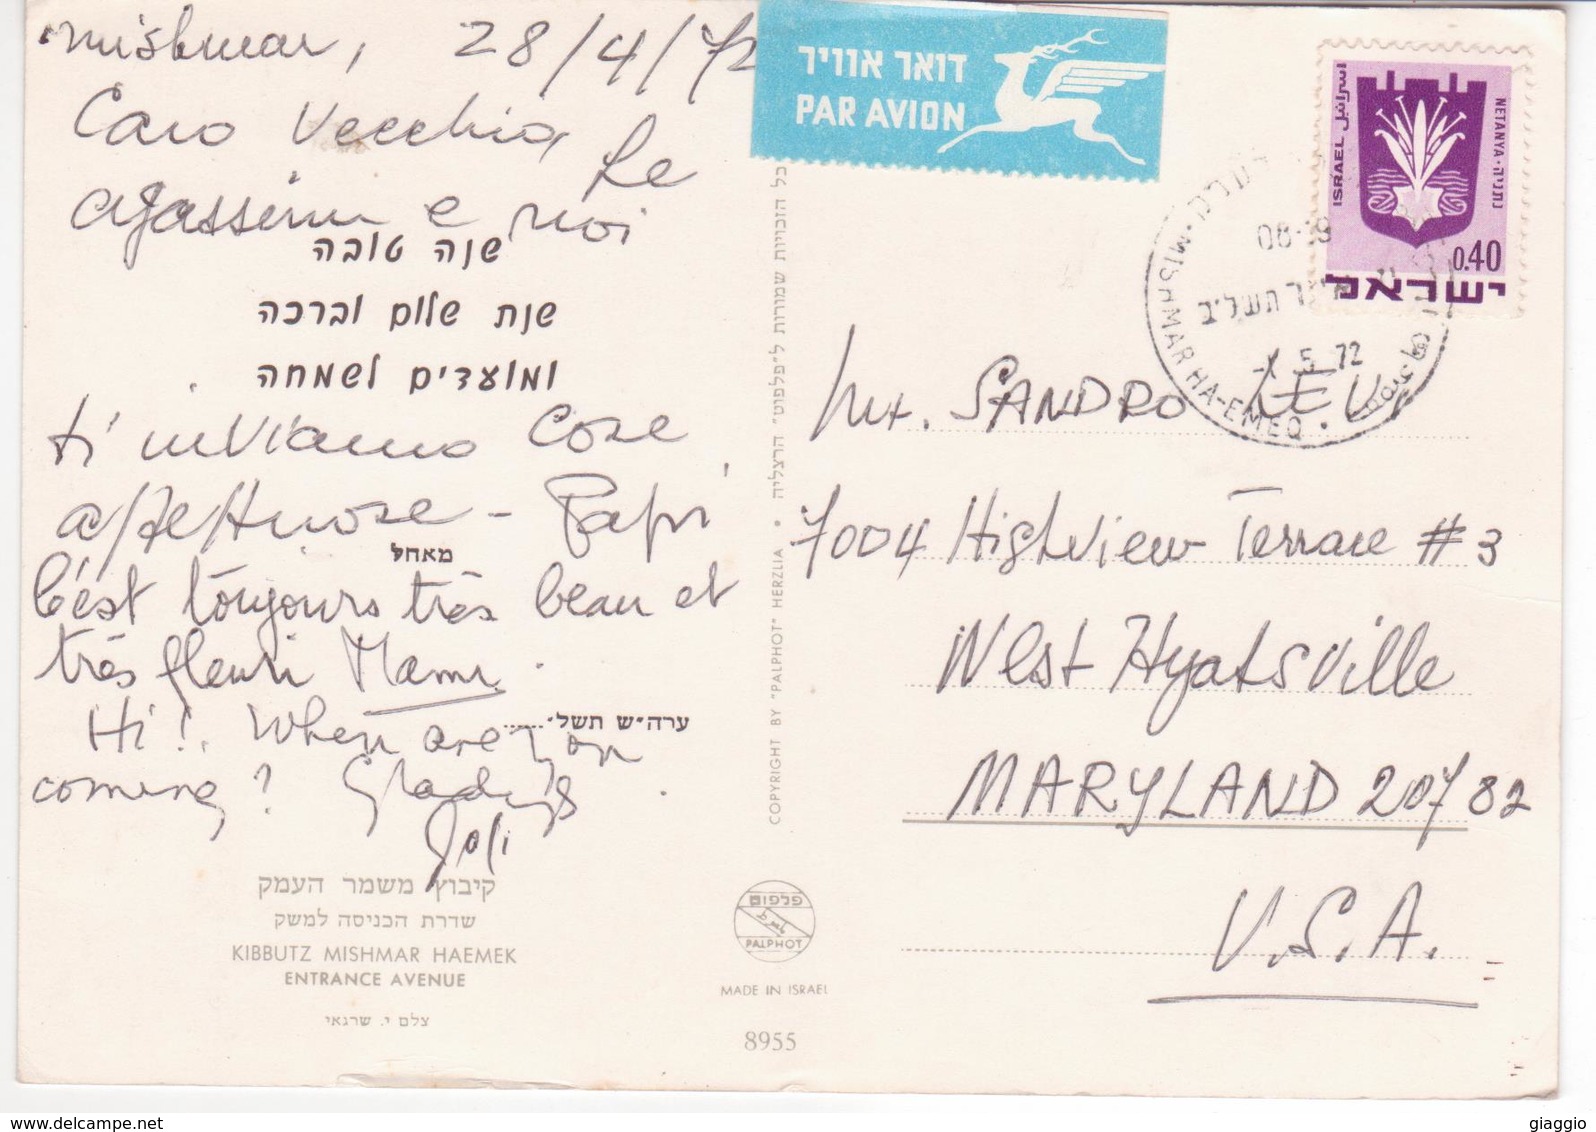 Mishmar, 28/4/72
Caro Vecchio, Le
agassim e noi
שנה טובה
שנת שלום וברכה
ומועדים לשמחה
ti inviamo cose
affettuose - Papi
מאחל
C'est toujours très beau et
très fleuri Mami.
ערה״ש תשל״......
Hi! When are you
coming? Gladys
קיבוץ משמר העמק
שדרת הכניסה למשק
KIBBUTZ MISHMAR HAEMEK
ENTRANCE AVENUE
צלם י. שרגאי
כל הזכויות שמורות ל״פלפוט״ הרצליה • COPYRIGHT BY "PALPHOT" HERZLIA
פלפוט
PALPHOT
MADE IN ISRAEL
8955
דואר אוויר
PAR AVION
ISRAEL اسرائيل
NETANYA · נתניה
0.40
ישראל
MISHMAR HA-EMEQ
08-19
תשל״ב
5 72
Mr. SANDRO LEVI
7004 Highview Terrace #3
West Hyattsville
MARYLAND 20782
U.S.A.
giaggio